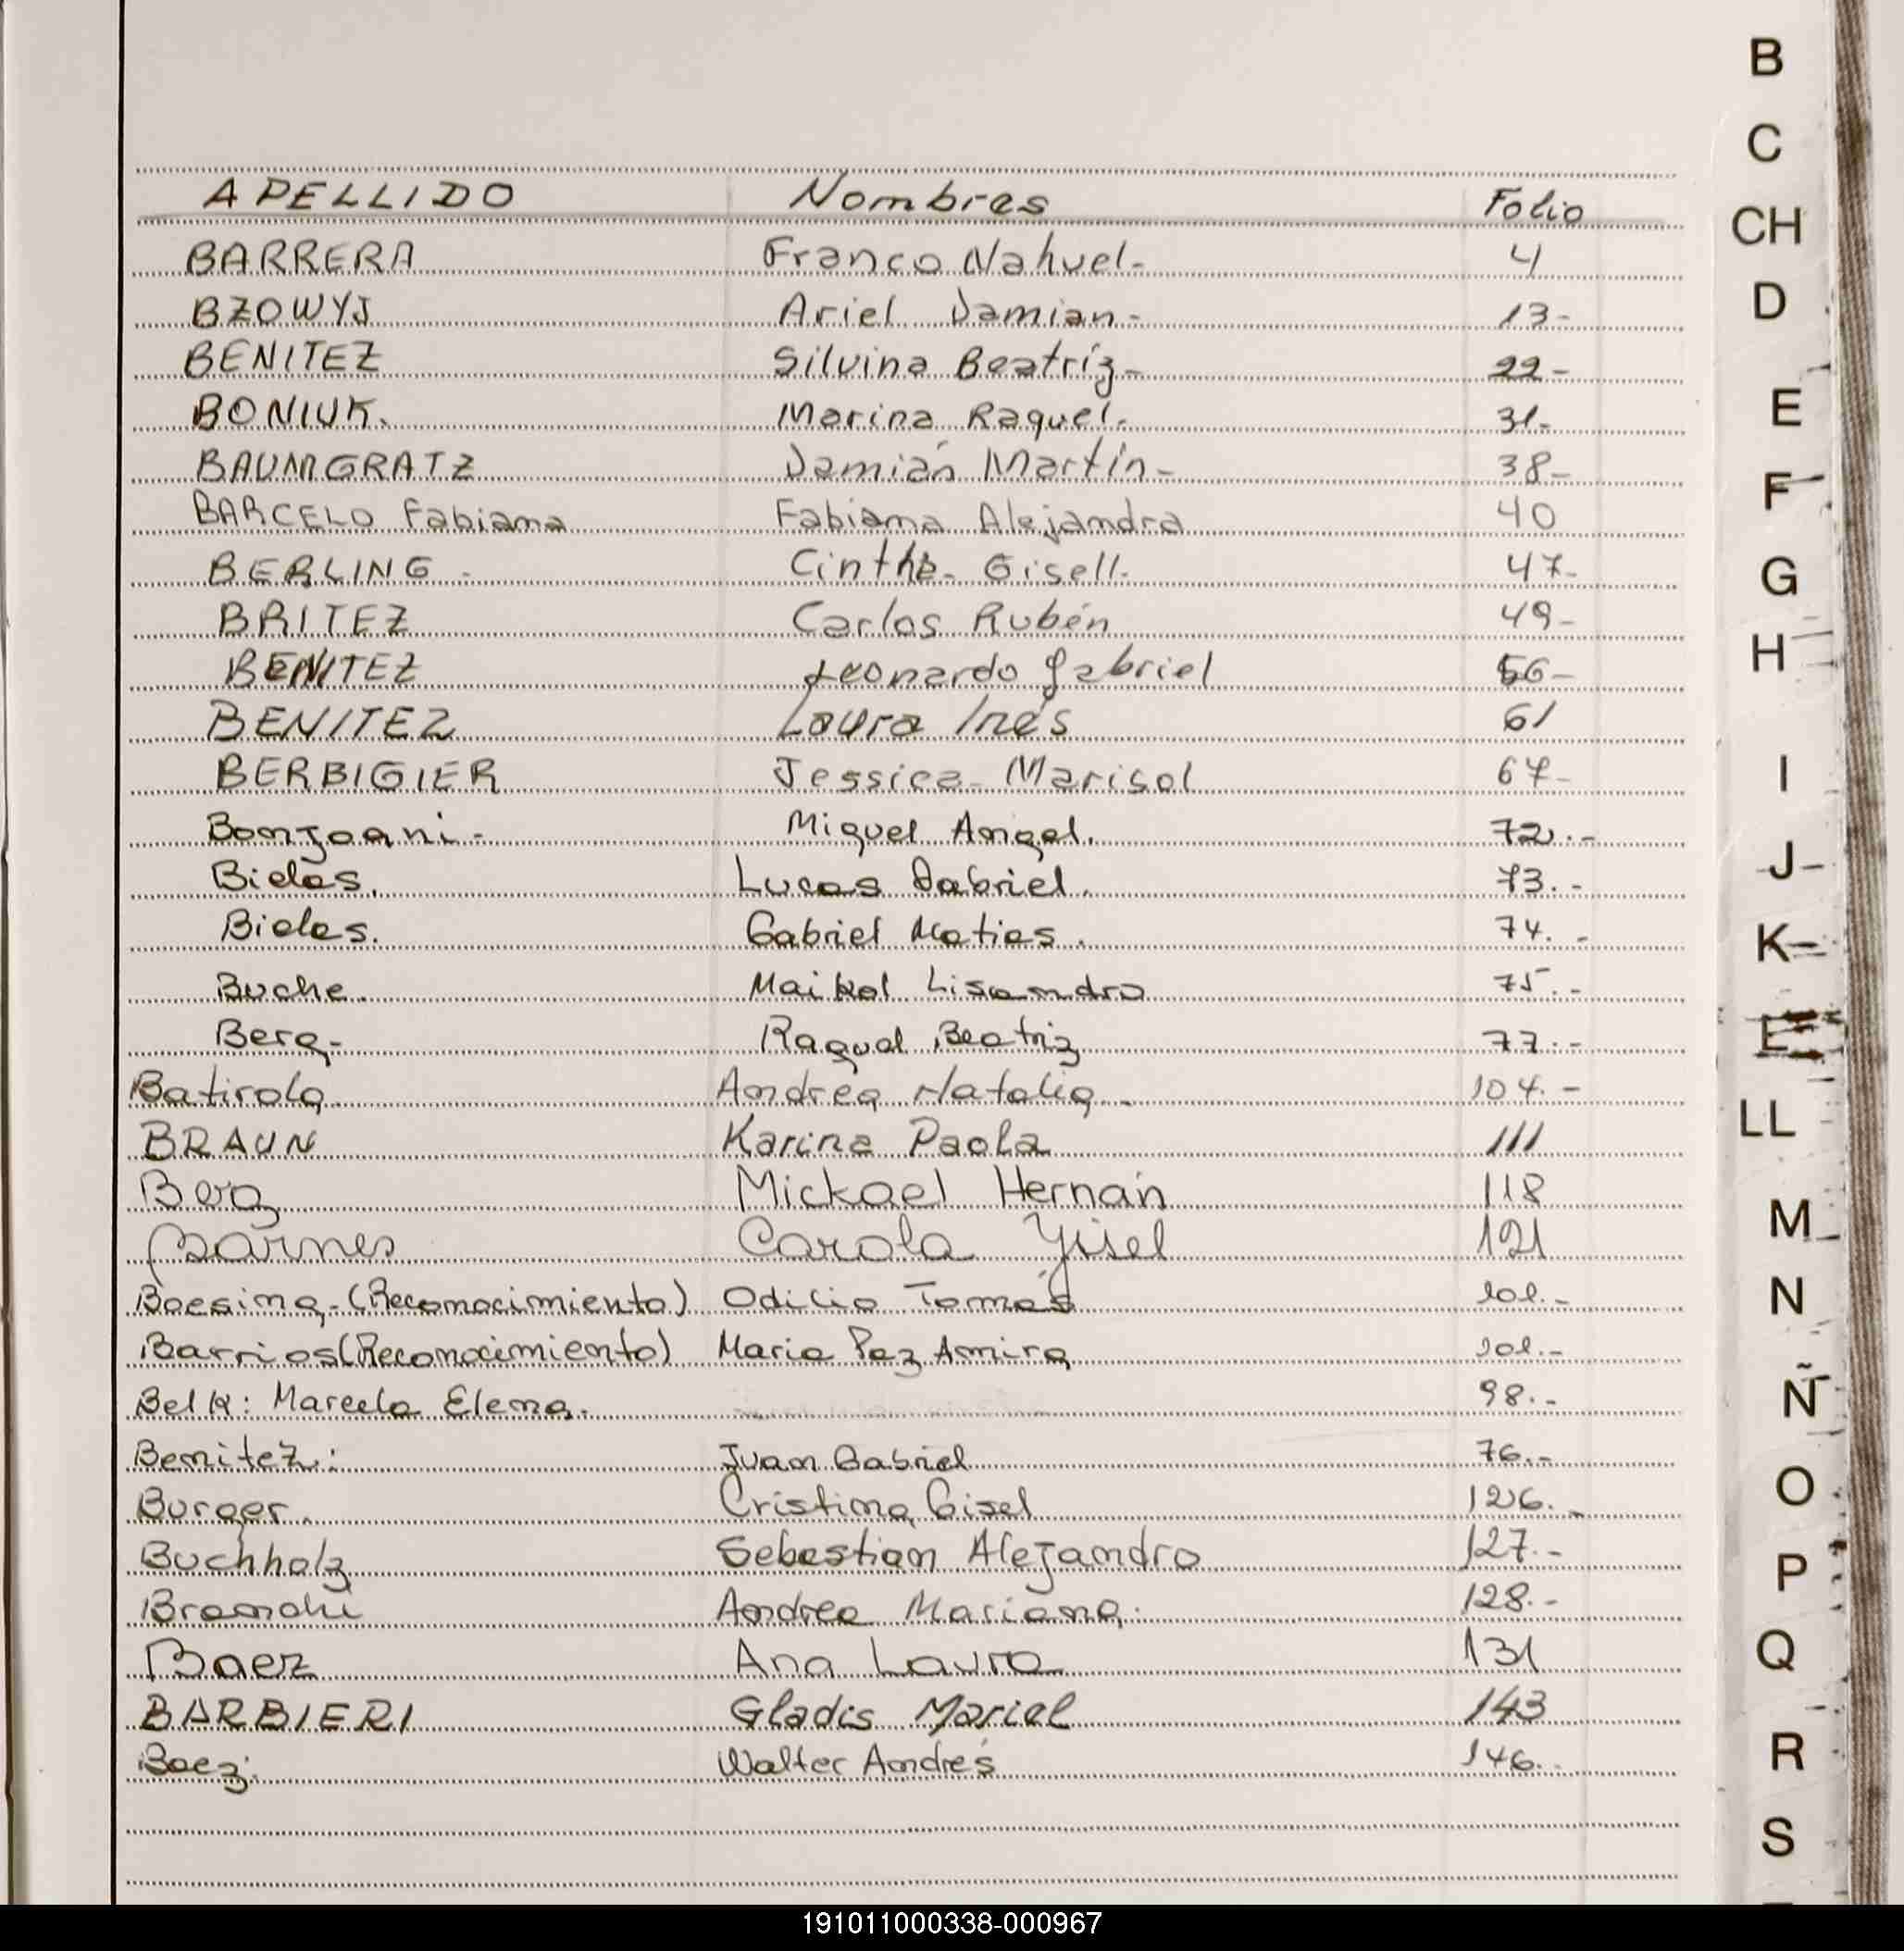 APELLIDO Nombres Folio
BARRERA Franco Nahuel- 4
BZOWYJ Ariel Damian- 13-
BENITEZ Silvina Beatríz- 22-
BONIUK. Marina Raquel. 31-
BAUMGRATZ Damián Martín- 38-
BARCELO Fabiana Fabiana Alejandra 40
BERLING - Gisell. 47-
BRITEZ Carlos Rubén 49-
BENITEZ Leonardo Gabriel 56-
BENITEZ Laura Inés 61
BERBIGIER Jessica Marisol 67-
Miguel Angel. 72.-
Bielas. Lucas Gabriel. 73.-
Bielas. Gabriel Matias. 74.-
Buche. Maikol Lisandro 75.-
Berg- Raquel Beatriz 77.-
Batirola Andrea Natalia.- 104.-
BRAUN Karina Paola 111
Berg Mickael Hernán 118
Barnes Carola Yisel 121
(Reconocimiento) Odilio Tomás 101.-
Barrios (Reconocimiento) Maria Paz Amira 101.-
Belk: Marcela Elena. 98.-
Benitez: Juan Gabriel 76.-
Burger. Cristina Gisel 126.-
Buchholz Sebastian Alejandro 127.-
Andrea Mariana. 128.-
Baez Ana Laura 131
BARBIERI Gladis Mariel 143
Baez: Walter Andrés 146.
B
C
CH
D
E
F
G
H
I
J
K
LL
M
N
Ñ
O
P
Q
R
S
191011000338-000967